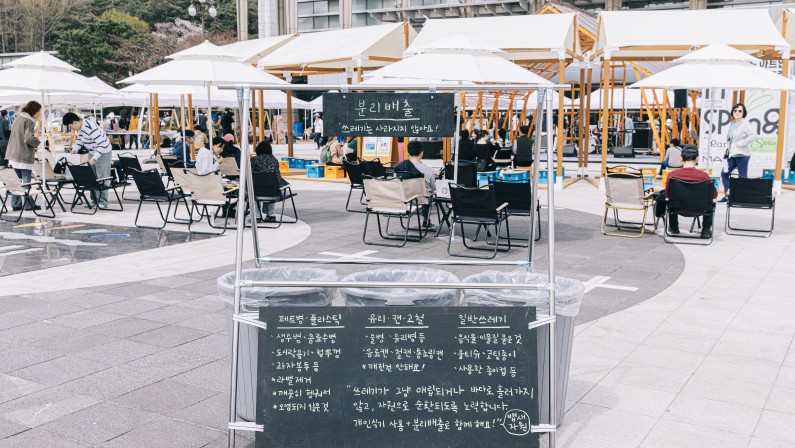 분리배출
쓰레기는 사라지지 않아요!
페트병·플라스틱
·생수병·음료수병
·도시락용기·컵뚜껑
·과자봉투 등
*라벨제거
*깨끗이 헹구서
*오염되지 않은 것
유리·캔·고철
·술병·유리병 등
·음료캔·철캔·통조림캔
*깨진건 안돼요!
일반쓰레기
·음식물·이물질 묻은 것
·물티슈·코팅종이
·사용한 종이컵 등
"쓰레기가 그냥 매립되거나 바다로 흘러가지
않고, 자원으로 순환되도록 노력합니다.
개인식기 사용 + 분리배출로 함께 해요!"
뱁새
자원